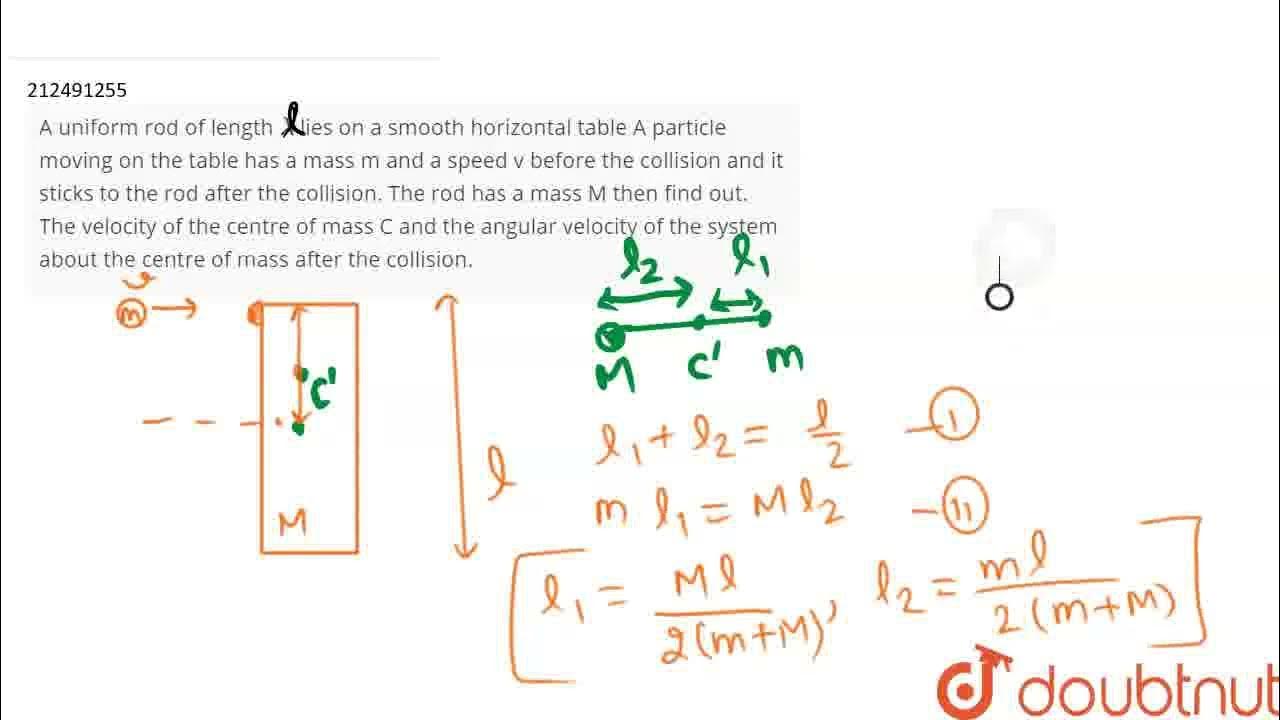 212491255
A uniform rod of length l lies on a smooth horizontal table A particle
moving on the table has a mass m and a speed v before the collision and it
sticks to the rod after the collision. The rod has a mass M then find out.
The velocity of the centre of mass C and the angular velocity of the system
about the centre of mass after the collision.
v
m
C'
M
l
l₂ l₁
M C' m
l₁ + l₂ = l/2 - I
m l₁ = M l₂ - II
l₁ = Ml/2(m+M), l₂ = ml/2(m+M)
doubtnut